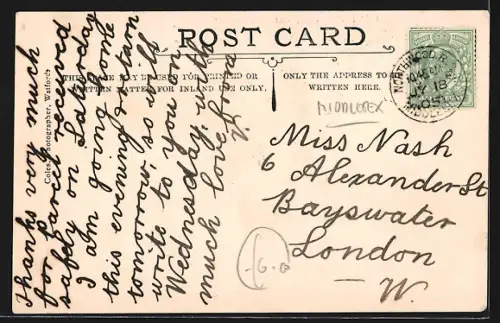 POST CARD
THIS SPACE MAY BE USED FOR PRINTED OR
WRITTEN MATTER FOR INLAND USE ONLY.
ONLY THE ADDRESS TO BE
WRITTEN HERE.
Coles, Photographer, Watford
Thanks very much
for parcel received
safely on Saturday
I am going home
this evening & return
tomorrow, so will
write to you on
Wednesday, with
much love from
V.
MIDDLESEX
Miss Nash
6 Alexander St
Bayswater
London
W.
-6-0
NORTHWOOD R.S.O.
JY 18
MIDDLESEX